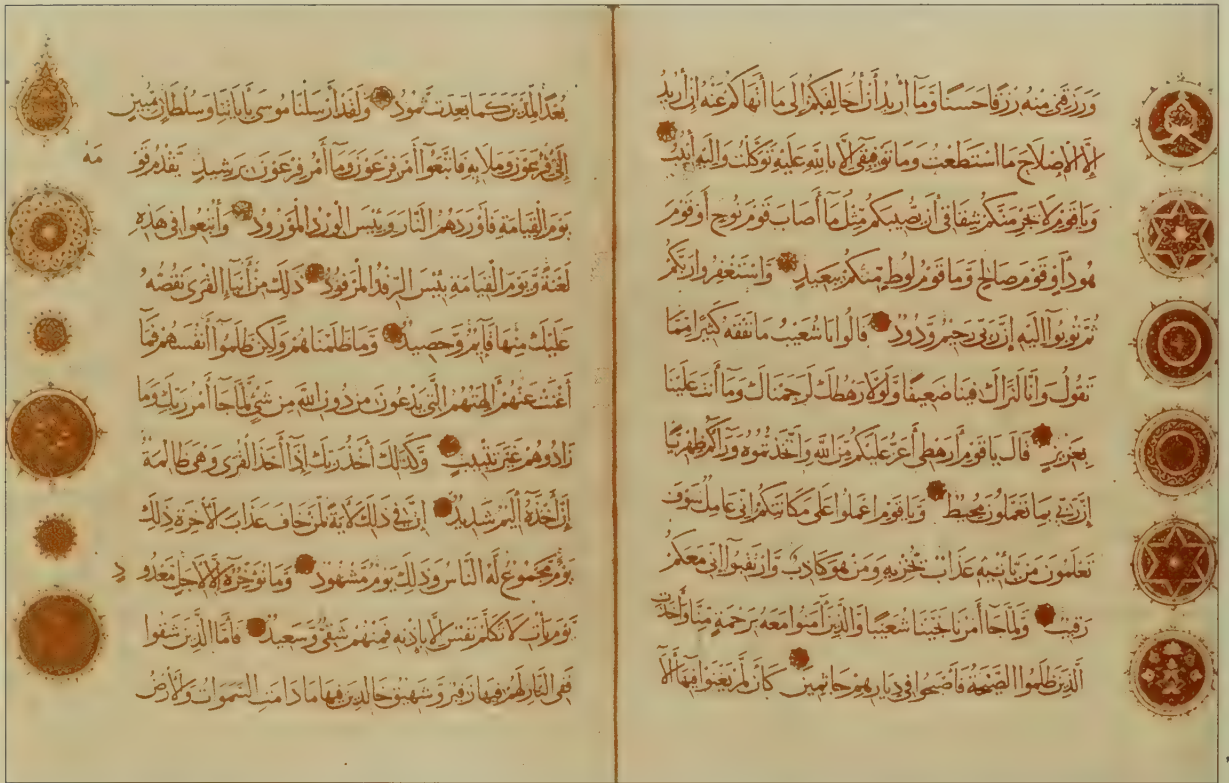 وَرَزَقَنِي مِنْهُ رِزْقًا حَسَنًا وَمَآ أُرِيدُ أَنْ أُخَالِفَكُمْ إِلَى مَا أَنْهَاكُمْ عَنْهُ إِنْ أُرِيدُ
إِلَّا الْإِصْلَاحَ مَا اسْتَطَعْتُ وَمَا تَوْفِيقِي إِلَّا بِاللَّهِ عَلَيْهِ تَوَكَّلْتُ وَإِلَيْهِ أُنِيبُ
وَيَاقَوْمِ لَا يَجْرِمَنَّكُمْ شِقَاقِي أَنْ يُصِيبَكُمْ مِثْلُ مَا أَصَابَ قَوْمَ نُوحٍ أَوْ قَوْمَ
هُودٍ أَوْ قَوْمَ صَالِحٍ وَمَا قَوْمُ لُوطٍ مِنْكُمْ بِبَعِيدٍ وَاسْتَغْفِرُوا رَبَّكُمْ
ثُمَّ تُوبُوآ إِلَيْهِ إِنَّ رَبِّي رَحِيمٌ وَدُودٌ قَالُوا يَاشُعَيْبُ مَا نَفْقَهُ كَثِيرًا مِمَّا
تَقُولُ وَإِنَّا لَنَرَاكَ فِينَا ضَعِيفًا وَلَوْلَا رَهْطُكَ لَرَجَمْنَاكَ وَمَآ أَنْتَ عَلَيْنَا
بِعَزِيزٍ قَالَ يَاقَوْمِ أَرَهْطِي أَعَزُّ عَلَيْكُمْ مِنَ اللَّهِ وَاتَّخَذْتُمُوهُ وَرَآءَكُمْ ظِهْرِيًّا
إِنَّ رَبِّي بِمَا تَعْمَلُونَ مُحِيطٌ وَيَاقَوْمِ اعْمَلُوا عَلَى مَكَانَتِكُمْ إِنِّي عَامِلٌ سَوْفَ
تَعْلَمُونَ مَنْ يَأْتِيهِ عَذَابٌ يُخْزِيهِ وَمَنْ هُوَ كَاذِبٌ وَارْتَقِبُوآ إِنِّي مَعَكُمْ
رَقِيبٌ وَلَمَّا جَآءَ أَمْرُنَا نَجَّيْنَا شُعَيْبًا وَالَّذِينَ آمَنُوا مَعَهُ بِرَحْمَةٍ مِنَّا وَأَخَذَتِ
الَّذِينَ ظَلَمُوا الصَّيْحَةُ فَأَصْبَحُوا فِي دِيَارِهِمْ جَاثِمِينَ كَأَنْ لَمْ يَغْنَوْا فِيهَآ أَلَا
بُعْدًا لِمَدْيَنَ كَمَا بَعِدَتْ ثَمُودُ وَلَقَدْ أَرْسَلْنَا مُوسَى بِآيَاتِنَا وَسُلْطَانٍ مُبِينٍ
إِلَى فِرْعَوْنَ وَمَلَإِيهِ فَاتَّبَعُوآ أَمْرَ فِرْعَوْنَ وَمَآ أَمْرُ فِرْعَوْنَ بِرَشِيدٍ يَقْدُمُ قَوْمَهُ
يَوْمَ الْقِيَامَةِ فَأَوْرَدَهُمُ النَّارَ وَبِئْسَ الْوِرْدُ الْمَوْرُودُ وَأُتْبِعُوا فِي هَذِهِ
لَعْنَةً وَيَوْمَ الْقِيَامَةِ بِئْسَ الرِّفْدُ الْمَرْفُودُ ذَلِكَ مِنْ أَنْبَآءِ الْقُرَى نَقُصُّهُ
عَلَيْكَ مِنْهَا قَآئِمٌ وَحَصِيدٌ وَمَا ظَلَمْنَاهُمْ وَلَكِنْ ظَلَمُوآ أَنْفُسَهُمْ فَمَآ
أَغْنَتْ عَنْهُمْ آلِهَتُهُمُ الَّتِي يَدْعُونَ مِنْ دُونِ اللَّهِ مِنْ شَيْءٍ لَمَّا جَآءَ أَمْرُ رَبِّكَ وَمَا
زَادُوهُمْ غَيْرَ تَتْبِيبٍ وَكَذَلِكَ أَخْذُ رَبِّكَ إِذَآ أَخَذَ الْقُرَى وَهِيَ ظَالِمَةٌ
إِنَّ أَخْذَهُ أَلِيمٌ شَدِيدٌ إِنَّ فِي ذَلِكَ لَآيَةً لِمَنْ خَافَ عَذَابَ الْآخِرَةِ ذَلِكَ
يَوْمٌ مَجْمُوعٌ لَهُ النَّاسُ وَذَلِكَ يَوْمٌ مَشْهُودٌ وَمَا نُؤَخِّرُهُ إِلَّا لِأَجَلٍ مَعْدُودٍ
يَوْمَ يَأْتِ لَا تَكَلَّمُ نَفْسٌ إِلَّا بِإِذْنِهِ فَمِنْهُمْ شَقِيٌّ وَسَعِيدٌ فَأَمَّا الَّذِينَ شَقُوا
فَفِي النَّارِ لَهُمْ فِيهَا زَفِيرٌ وَشَهِيقٌ خَالِدِينَ فِيهَا مَا دَامَتِ السَّمَوَاتُ وَالْأَرْضُ